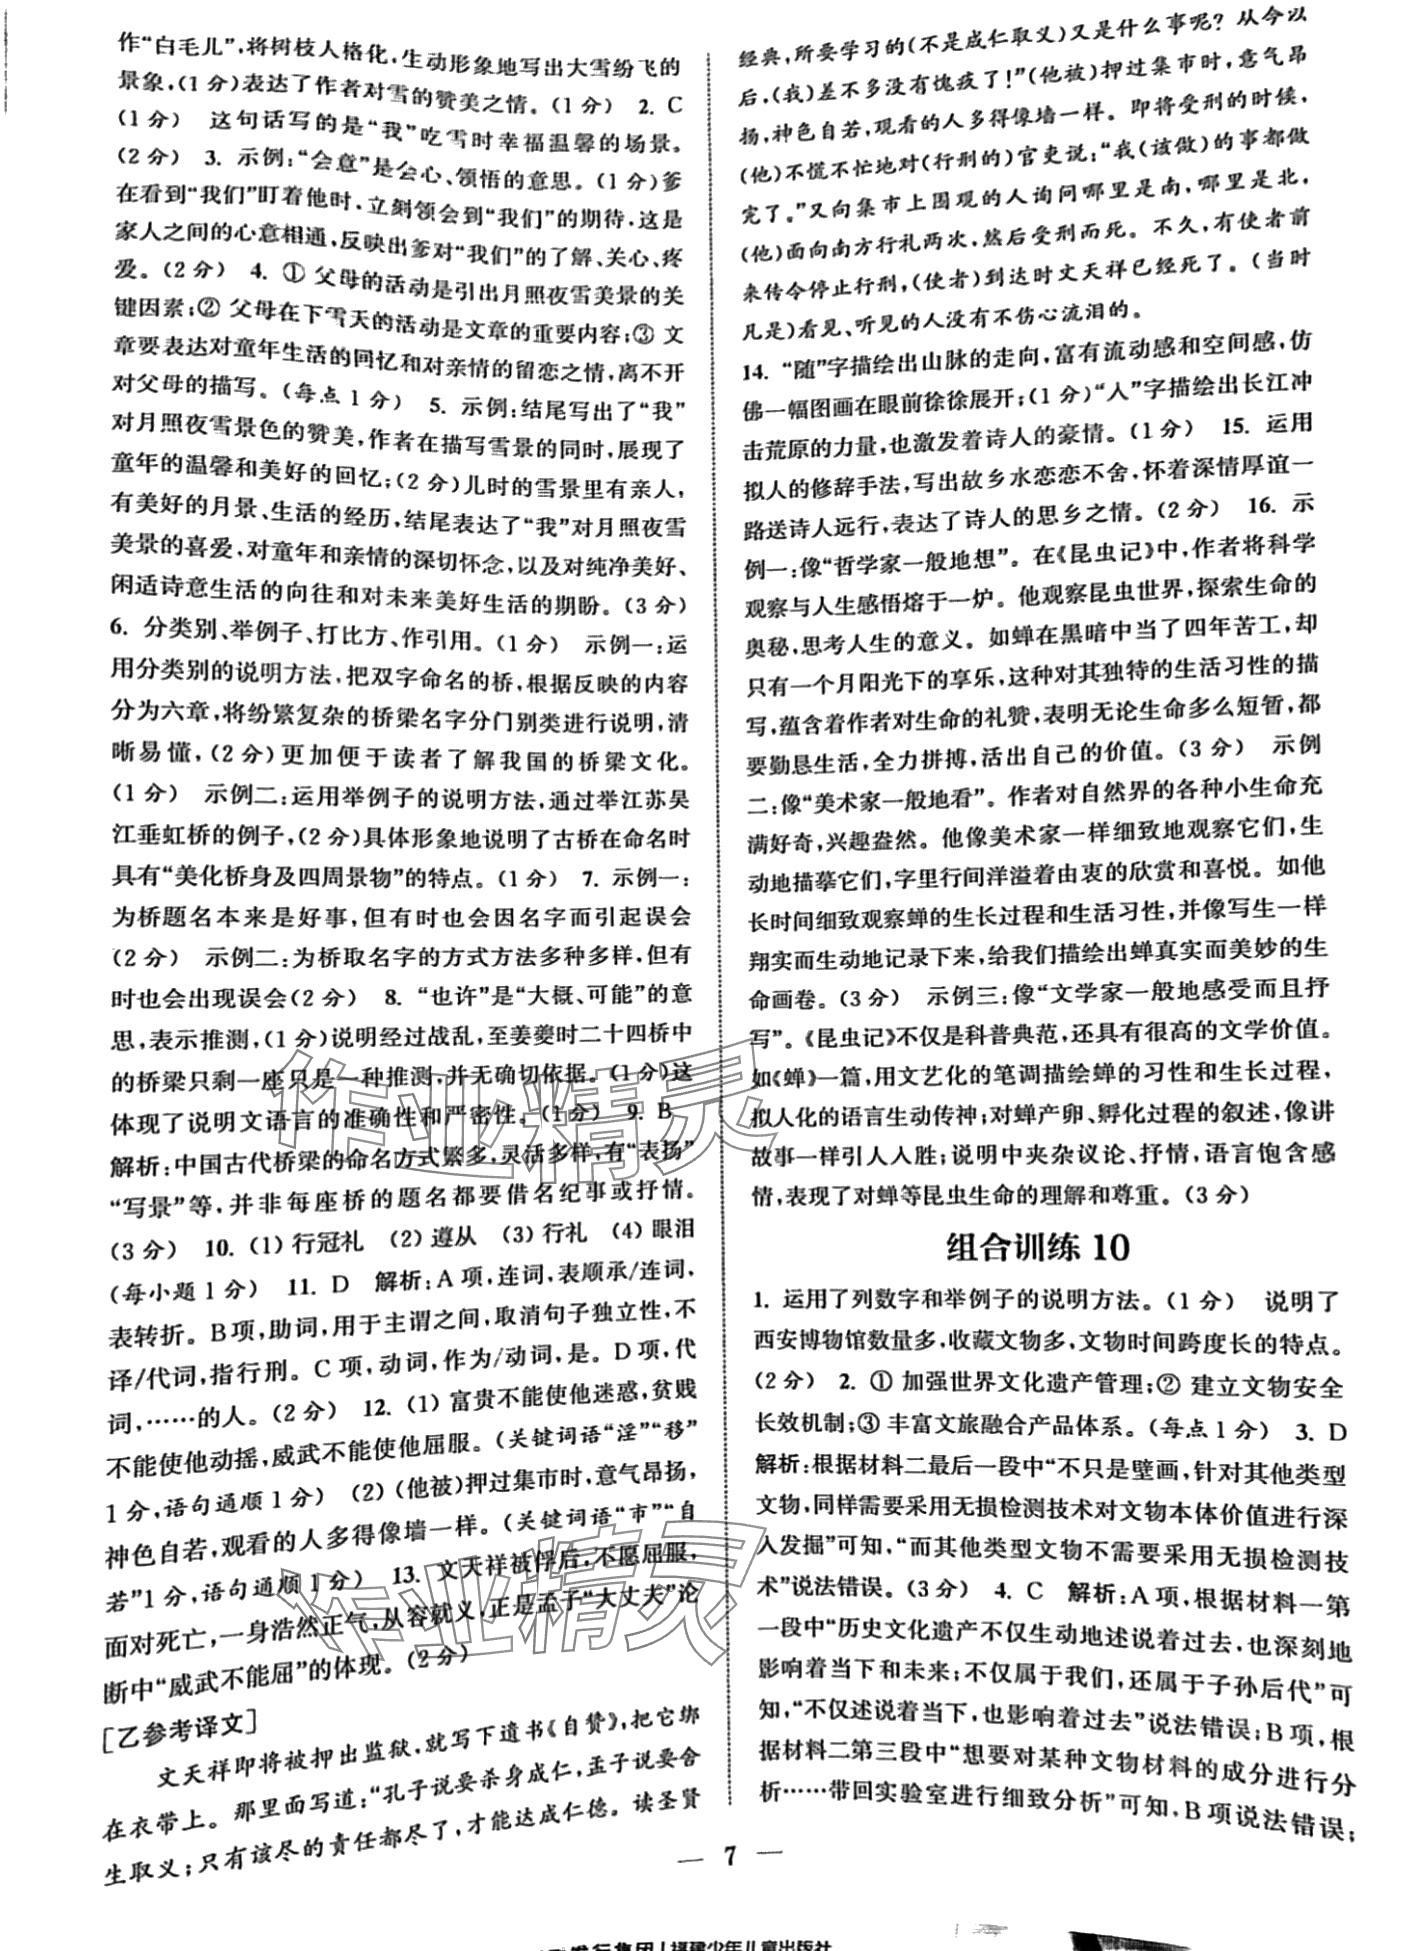 作“白毛儿”,将树枝人格化,生动形象地写出大雪纷飞的
景象,(1分)表达了作者对雪的赞美之情。(1分) 2. C
(1分) 这句话写的是“我”吃雪时幸福温馨的场景。
(2分) 3. 示例:“会意”是会心、领悟的意思。(1分)爹
在看到“我们”盯着他时,立刻领会到“我们”的期待,这是
家人之间的心意相通,反映出爹对“我们”的了解、关心、疼
爱。(2分) 4. ① 父母的活动是引出月照夜雪美景的关
键因素;② 父母在下雪天的活动是文章的重要内容;③ 文
章要表达对童年生活的回忆和对亲情的留恋之情,离不开
对父母的描写。(每点1分) 5. 示例:结尾写出了“我”
对月照夜雪景色的赞美,作者在描写雪景的同时,展现了
童年的温馨和美好的回忆;(2分)儿时的雪景里有亲人,
有美好的月景、生活的经历,结尾表达了“我”对月照夜雪
美景的喜爱,对童年和亲情的深切怀念,以及对纯净美好、
闲适诗意生活的向往和对未来美好生活的期盼。(3分)
6. 分类别、举例子、打比方、作引用。(1分) 示例一:运
用分类别的说明方法,把双字命名的桥,根据反映的内容
分为六章,将纷繁复杂的桥梁名字分门别类进行说明,清
晰易懂,(2分)更加便于读者了解我国的桥梁文化。
(1分) 示例二:运用举例子的说明方法,通过举江苏吴
江垂虹桥的例子,(2分)具体形象地说明了古桥在命名时
具有“美化桥身及四周景物”的特点。(1分) 7. 示例一:
为桥题名本来是好事,但有时也会因名字而引起误会
(2分) 示例二:为桥取名字的方式方法多种多样,但有
时也会出现误会(2分) 8. “也许”是“大概、可能”的意
思,表示推测,(1分)说明经过战乱,至姜夔时二十四桥中
的桥梁只剩一座只是一种推测,并无确切依据。(1分)这
体现了说明文语言的准确性和严密性。(1分) 9. B
解析:中国古代桥梁的命名方式繁多,灵活多样,有“表扬”
“写景”等,并非每座桥的题名都要借名纪事或抒情。
(3分) 10. (1) 行冠礼 (2) 遵从 (3) 行礼 (4) 眼泪
(每小题1分) 11. D 解析:A项,连词,表顺承/连词,
表转折。B项,助词,用于主谓之间,取消句子独立性,不
译/代词,指行刑。C项,动词,作为/动词,是。D项,代
词,……的人。(2分) 12. (1) 富贵不能使他迷惑,贫贱
不能使他动摇,威武不能使他屈服。(关键词语“淫”“移”
1分,语句通顺1分) (2) (他被)押过集市时,意气昂扬,
神色自若,观看的人多得像墙一样。(关键词语“市”“自
若”1分,语句通顺1分) 13. 文天祥被俘后,不愿屈服,
面对死亡,一身浩然正气,从容就义,正是孟子“大丈夫”论
断中“威武不能屈”的体现。(2分)
[乙参考译文]
文天祥即将被押出监狱,就写下遗书《自赞》,把它绑
在衣带上。那里面写道:“孔子说要杀身成仁,孟子说要舍
生取义;只有该尽的责任都尽了,才能达成仁德。读圣贤
经典,所要学习的(不是成仁取义)又是什么事呢?从今以
后,(我)差不多没有愧疚了!”(他被)押过集市时,意气昂
扬,神色自若,观看的人多得像墙一样。即将受刑的时候,
(他)不慌不忙地对(行刑的)官吏说:“我(该做)的事都做
完了。”又向集市上围观的人询问哪里是南,哪里是北,
(他)面向南方行礼两次,然后受刑而死。不久,有使者前
来传令停止行刑,(使者)到达时文天祥已经死了。(当时
凡是)看见、听见的人没有不伤心流泪的。
14. “随”字描绘出山脉的走向,富有流动感和空间感,仿
佛一幅图画在眼前徐徐展开;(1分)“人”字描绘出长江冲
击荒原的力量,也激发着诗人的豪情。(1分) 15. 运用
拟人的修辞手法,写出故乡水恋恋不舍,怀着深情厚谊一
路送诗人远行,表达了诗人的思乡之情。(2分) 16. 示
例一:像“哲学家一般地想”。在《昆虫记》中,作者将科学
观察与人生感悟熔于一炉。他观察昆虫世界,探索生命的
奥秘,思考人生的意义。如蝉在黑暗中当了四年苦工,却
只有一个月阳光下的享乐,这种对其独特的生活习性的描
写,蕴含着作者对生命的礼赞,表明无论生命多么短暂,都
要勤恳生活,全力拼搏,活出自己的价值。(3分) 示例
二:像“美术家一般地看”。作者对自然界的各种小生命充
满好奇,兴趣盎然。他像美术家一样细致地观察它们,生
动地描摹它们,字里行间洋溢着由衷的欣赏和喜悦。如他
长时间细致观察蝉的生长过程和生活习性,并像写生一样
翔实而生动地记录下来,给我们描绘出蝉真实而美妙的生
命画卷。(3分) 示例三:像“文学家一般地感受而且抒
写”。《昆虫记》不仅是科普典范,还具有很高的文学价值。
如《蝉》一篇,用文艺化的笔调描绘蝉的习性和生长过程,
拟人化的语言生动传神;对蝉产卵、孵化过程的叙述,像讲
故事一样引人入胜;说明中夹杂议论、抒情,语言饱含感
情,表现了对蝉等昆虫生命的理解和尊重。(3分)
组合训练10
1. 运用了列数字和举例子的说明方法。(1分) 说明了
西安博物馆数量多,收藏文物多,文物时间跨度长的特点。
(2分) 2. ① 加强世界文化遗产管理;② 建立文物安全
长效机制;③ 丰富文旅融合产品体系。(每点1分) 3. D
解析:根据材料二最后一段中“不只是壁画,针对其他类型
文物,同样需要采用无损检测技术对文物本体价值进行深
入发掘”可知,“而其他类型文物不需要采用无损检测技
术”说法错误。(3分) 4. C 解析:A项,根据材料一第
一段中“历史文化遗产不仅生动地述说着过去,也深刻地
影响着当下和未来;不仅属于我们,还属于子孙后代”可
知,“不仅述说着当下,也影响着过去”说法错误;B项,根
据材料二第三段中“想要对某种文物材料的成分进行分
析……带回实验室进行细致分析”可知,B项说法错误;
— 7 —
作业精灵
作业精灵
发行集团 福建少年儿童出版社